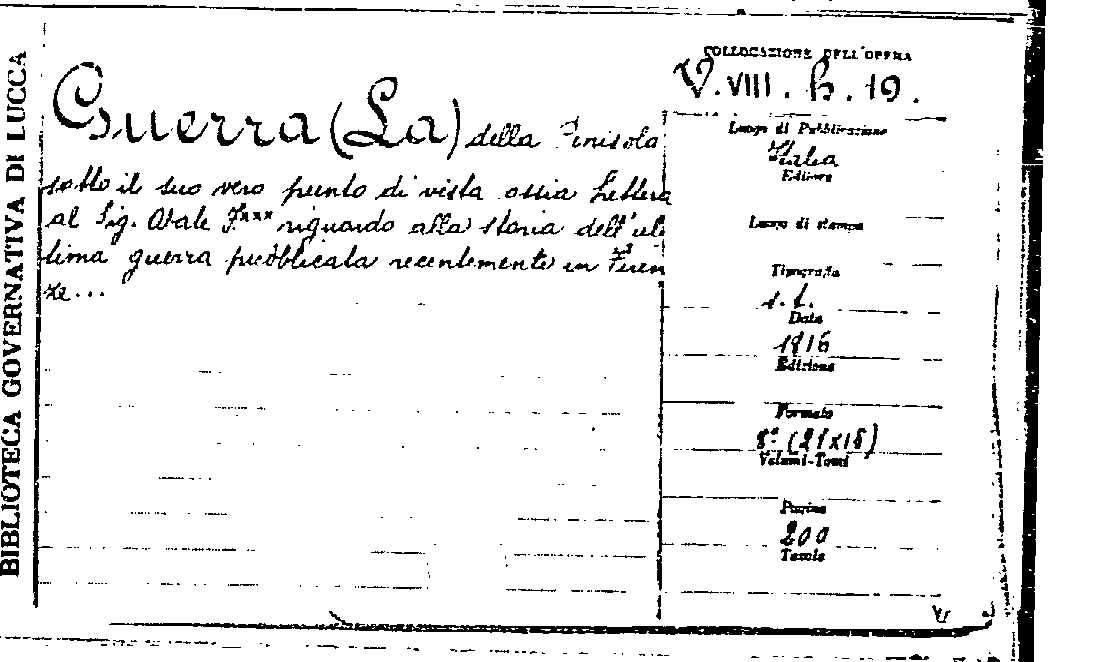 BIBLIOTECA GOVERNATIVA DI LUCCA
Guerra (La) della Penisola
sotto il suo vero punto di vista ossia Lettera
al Sig. Abate F*** riguardo alla storia dell'ul
tima guerra pubblicata recentemente in Firen
ze...
COLLOCAZIONE DELL'OPERA
V. VIII. h. 19.
Luogo di Pubblicazione
Italia
Editore
Luogo di stampa
Tipografia
s.t.
Data
1816
Edizione
Formato
8° (21x15)
Volumi-Tomi
Pagine
200
Tavole